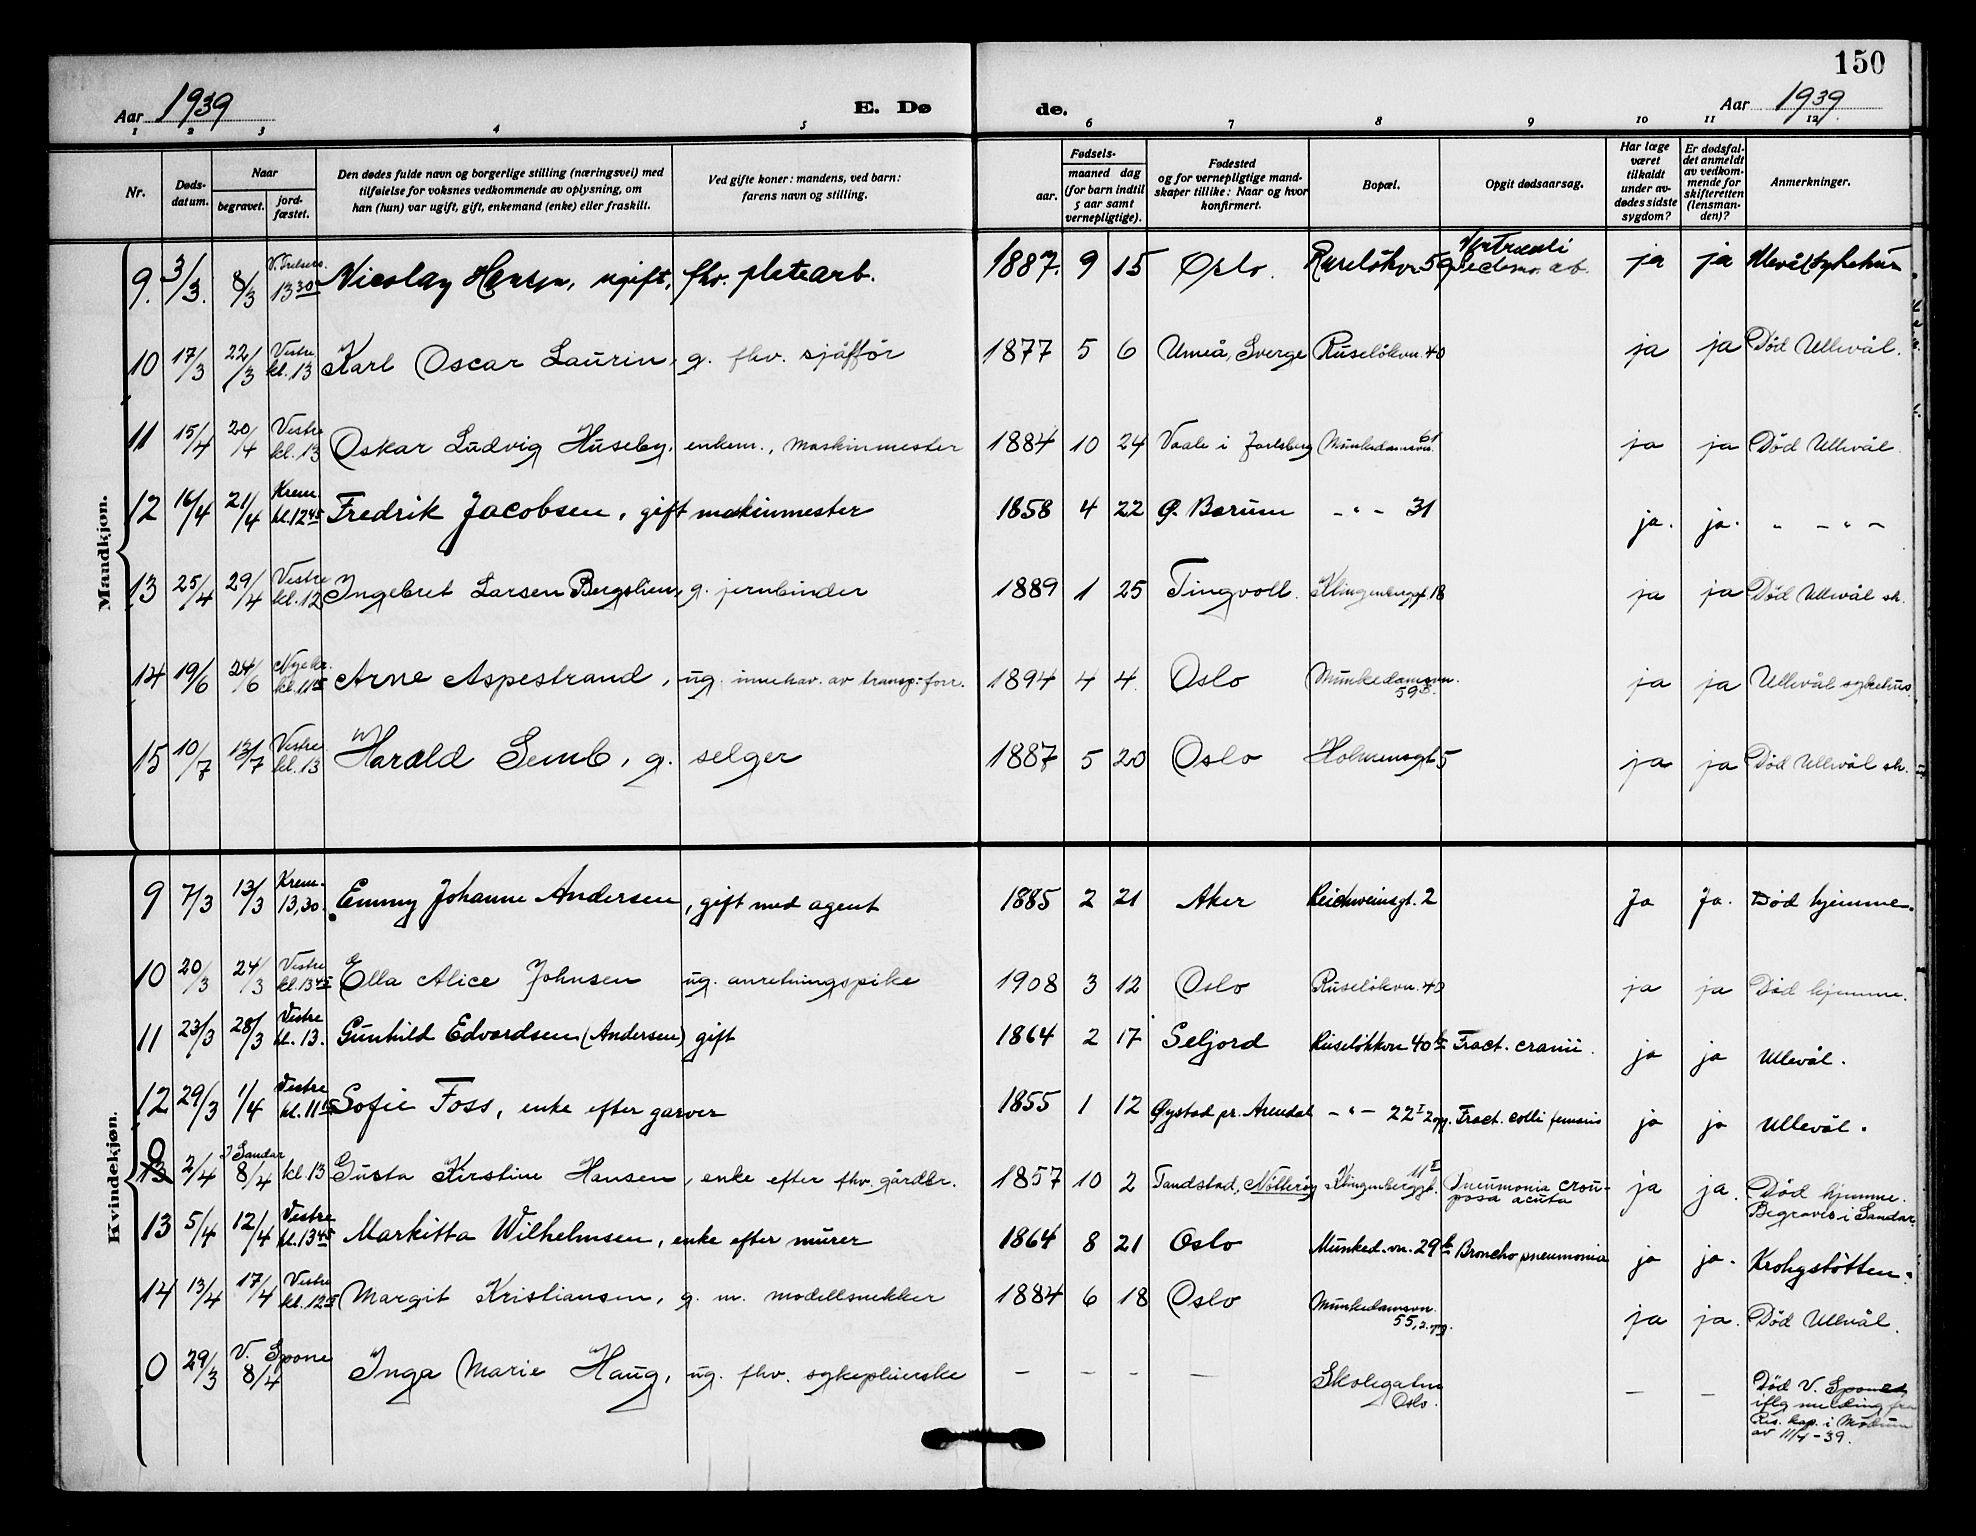 150
Aar 1939 E. Døde. Aar 1939
1 2 3 4 5 6 7 8 9 10 11 12
Nr. Dødsdatum. Naar begravet. jordfæstet. Den dødes fulde navn og borgerlige stilling (næringsvei) med tilføielse for voksnes vedkommende av oplysning, om han (hun) var ugift, gift, enkemand (enke) eller fraskilt. Ved gifte koner: mandens, ved barn: farens navn og stilling. Fødsels- aar. maaned dag (for barn indtil 5 aar samt vernepligtige). Fødested og for vernepligtige mandskaper tillike: Naar og hvor konfirmert. Bopæl. Opgit dødsaarsag. Har læge været tilkaldt under avdødes sidste sygdom? Er dødsfaldet anmeldt av vedkommende for skifteretten (lensmanden)? Anmerkninger.
Mandkjøn.
9. 3/3. 8/3 V. Frelsers. 13 30 Nicolay Hansen, ugift, fhv. platearb. 1887. 9 15 Oslo. Ruseløkvn 59 ja ja Ullevål sykehus
10 17/3 22/3 Vestre kl. 13 Karl Oscar Laurin, g. fhv. sjåffør 1877 5 6 Umeå, Sverge Ruseløkvn. 40 ja ja Død Ullevål.
11 15/4 20/4 Vestre kl. 13 Oskar Ludvig Huseby, enkem., maskinmester 1884 10 24 Vaale i Jarlsberg Munkedamsvn. 61 ja ja Død Ullevål
12 16/4 21/4 Krem. kl. 12 45 Fredrik Jacobsen, gift maskinmester 1858 4 22 Ø. Bærum - " - 31 ja. ja. " - " -
13 25/4 29/4 Vestre kl. 12 Ingebret Larsen Bergslien, g. jernbinder 1889 1 25 Tingvoll. Klingenberggt 18 ja ja Død Ullevål sk.
14 19/6 24/6 Nye kr. kl. 11 15 Arne Aspestrand, ug. innehav. av transp.-forr. 1894 4 4 Oslo Munkedamsvn. 59 B. ja ja Ullevål sykehus.
15 10/7 13/7 Vestre kl. 13 Harald Semb, g. selger 1887 5 20 Oslo Holmensgt 5 ja ja Død Ullevål sk.
Kvindekjøn.
9 7/3 13/3 Krem. 13,30. Emmy Johanne Andersen, gift med agent 1885 2 21 Aker Reichweinsgt. 2 Ja Ja. Død hjemme.
10 20/3 24/3 Vestre kl. 13 45 Ella Alice Johnsen ug. anretningspike 1908 3 12 Oslo Ruseløkvn. 40 ja ja Død hjemme.
11 23/3 28/3 Vestre kl. 13. Gunhild Edvardsen (Andersen) gift 1864 2 17 Seljord Ruseløkkvn 40 b Fract. cranii. ja ja Ullevål.
12 29/3 1/4 Vestre kl. 11 15 Sofie Foss, enke efter garver 1855 1 12 Øystad pr. Arendal - " - 22 I 2 opg. Fract. colli femoris ja ja Ullevål.
0 2/4 I Sandar 8/4 kl. 13 Gusta Kirstine Hansen, enke efter fhv. gårdbr. 1857 10 2 Tandstad, Nøtterøy Klingenberggt. 11 I Pneumonia crouposa acuta ja ja. Død hjemme. Begraves i Sandar.
13 5/4 12/4 Vestre kl. 13 45 Markitta Wilhelmsen, enke efter murer 1864 8 21 Oslo Munked.vn. 29 b Broncho pneumonia ja ja. Krohgstøtten.
14 13/4 17/4 Vestre kl. 12 15 Margit Kristiansen, g. m. modellsnekker 1884 6 18 Oslo Munkedamsvn. 55, 2. opg. ja ja. Død Ullevål.
0 29/3 V. Spone 8/4 Inga Marie Haug, ug. fhv. sykepleierske - - - - Skolegaten Oslo. - - Død V. Spone iflg melding fra Res. kap. i Modum av 11/4-39.